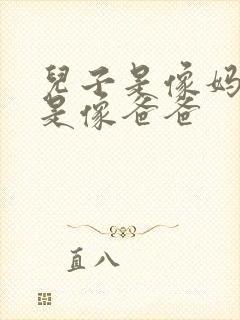 兒子是像媽
是像爸爸
直八